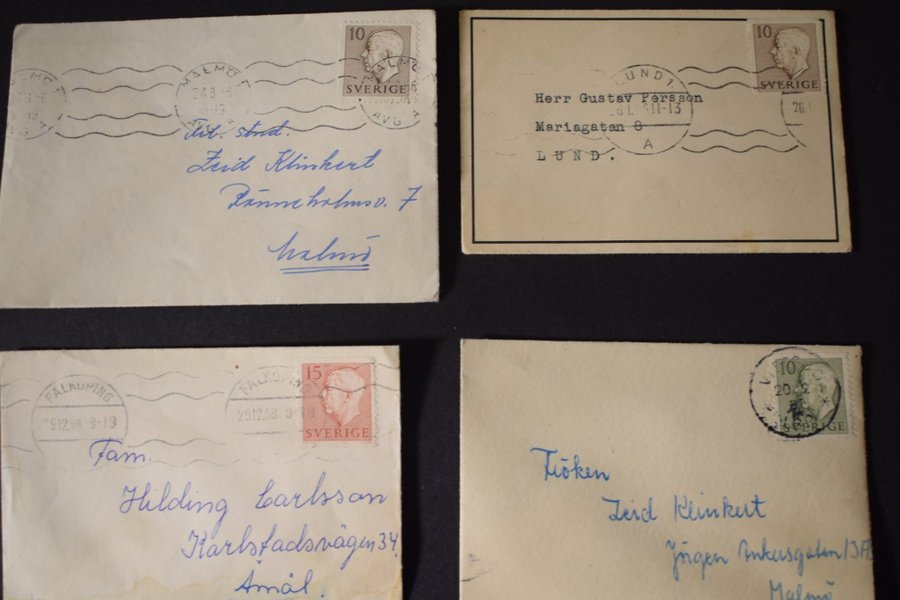 10
SVERIGE
MALMÖ 1
24.3
AVG A
stud.
Zeid Klinkert
Rönneholmsv. 7
Malmö
10
SVERIGE
LUND 1
11-13
A
26.
Herr Gustav Persson
Mariagatan 8
LUND.
15
SVERIGE
FALKÖPING
29.12.58 9-19
FALKÖPING
29.12.58
Fam.
Hilding Carlsson
Karlstadsvägen 34
Åmål.
10
SVERIGE
20
Fröken
Zeid Klinkert
Jörgen Ankersgatan 13A
Malmö